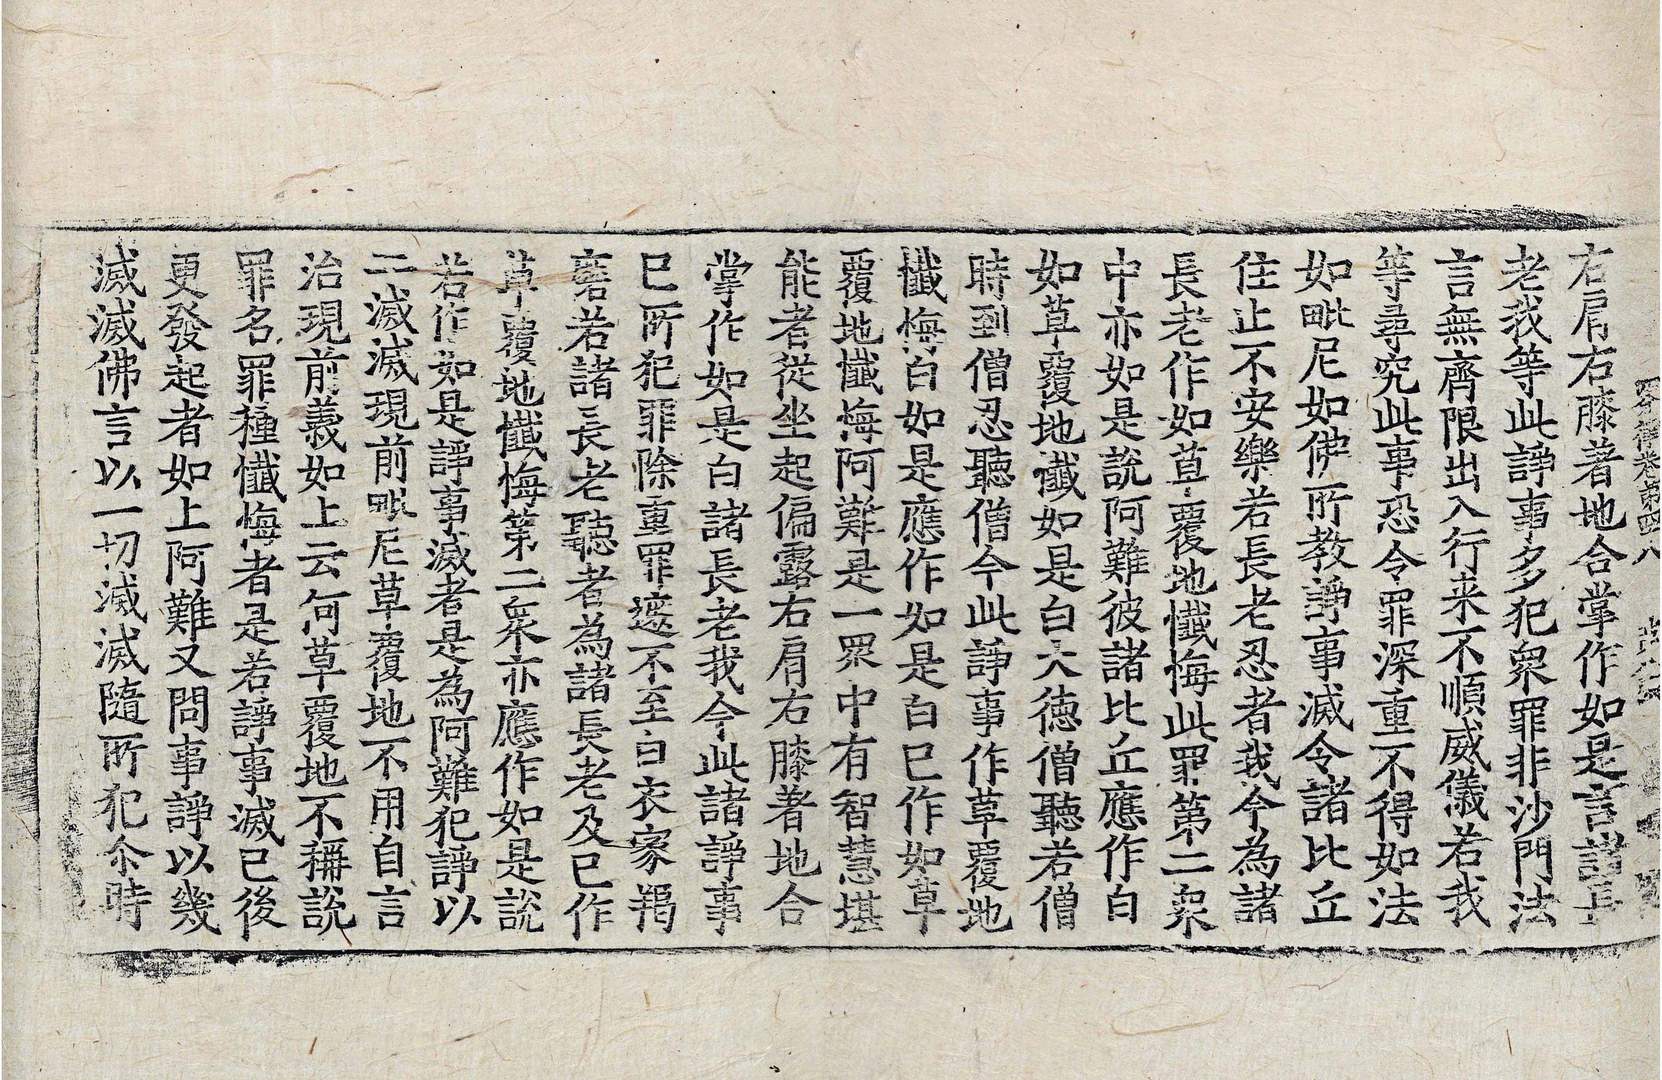 右肩右膝著地合掌作如是言諸長
老我等此諍事多犯衆罪非沙門法
言無齊限出入行来不順威儀若我
等尋究此事恐令罪深重不得如法
如毗尼如佛所教諍事滅令諸比丘
住止不安樂若長老忍者我今為諸
長老作如草覆地懺悔此罪第二衆
中亦如是說阿難彼諸比丘應作白
如草覆地懺如是白大徳僧聽若僧
時到僧忍聽僧今此諍事作草覆地
懺悔白如是應作如是白已作如草
覆地懺悔阿難是一眾中有智慧堪
能者從坐起偏露右肩右膝著地合
掌作如是白諸長老我今此諸諍事
已所犯罪除重罪遮不至白衣家羯
磨若諸長老聽者為諸長老及已作
草覆地懺悔第二衆亦應作如是說
若作如是諍事滅者是為阿難犯諍以
二滅滅現前毗尼草覆地不用自言
治現前義如上云何草覆地不稱說
罪名罪種懺悔者是若諍事滅已後
更發起者如上阿難又問事諍以幾
滅滅佛言以一切滅滅隨所犯尒時